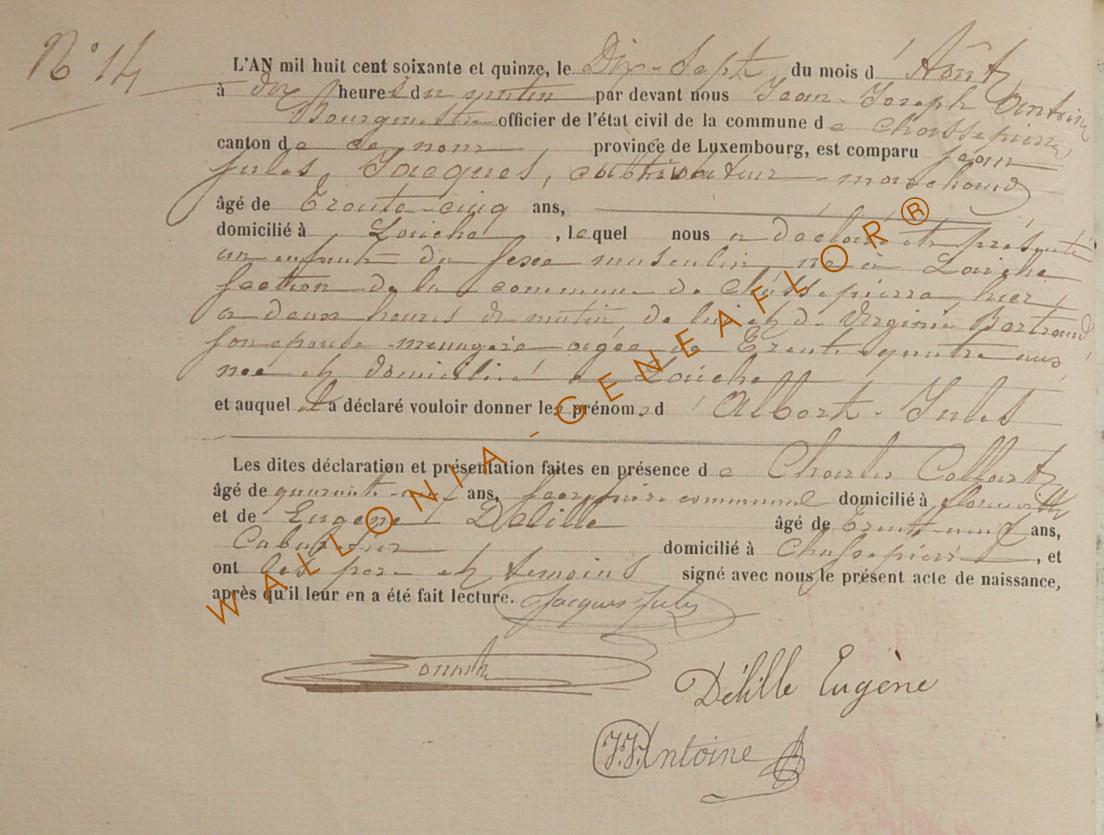 N° 14
L'AN mil huit cent soixante et quinze, le Dix-Sept du mois d'Août
à dix heures du matin par devant nous Jean-Joseph Antoine
Bourgmestre officier de l'état civil de la commune de Chassepierre
canton de ce nom province de Luxembourg, est comparu Jean
Jules Jacques, cultivateur-marchand
âgé de Trente-cinq ans,
domicilié à Laiche, lequel nous a déclaré et présenté
un enfant du sexe masculin né à Laiche
section de la commune de Chassepierre, hier,
à deux heures du matin, de lui et de Virginie Bertrand
son épouse ménagère âgée de Trente-quatre ans
née et domiciliée à Laiche
et auquel il a déclaré vouloir donner les prénoms d'Albert-Jules
Les dites déclaration et présentation faites en présence de Charles
âgé de quarante ans, secrétaire communal domicilié à Florenville
et de Eugène Delille âgé de Trente-neuf ans,
Cabaretier domicilié à Chassepierre, et
ont les père et témoins signé avec nous le présent acte de naissance,
après qu'il leur en a été fait lecture. Jacques Jules
Délille Eugène
J.J. Antoine
WALLONIA-GENEAFLOR®